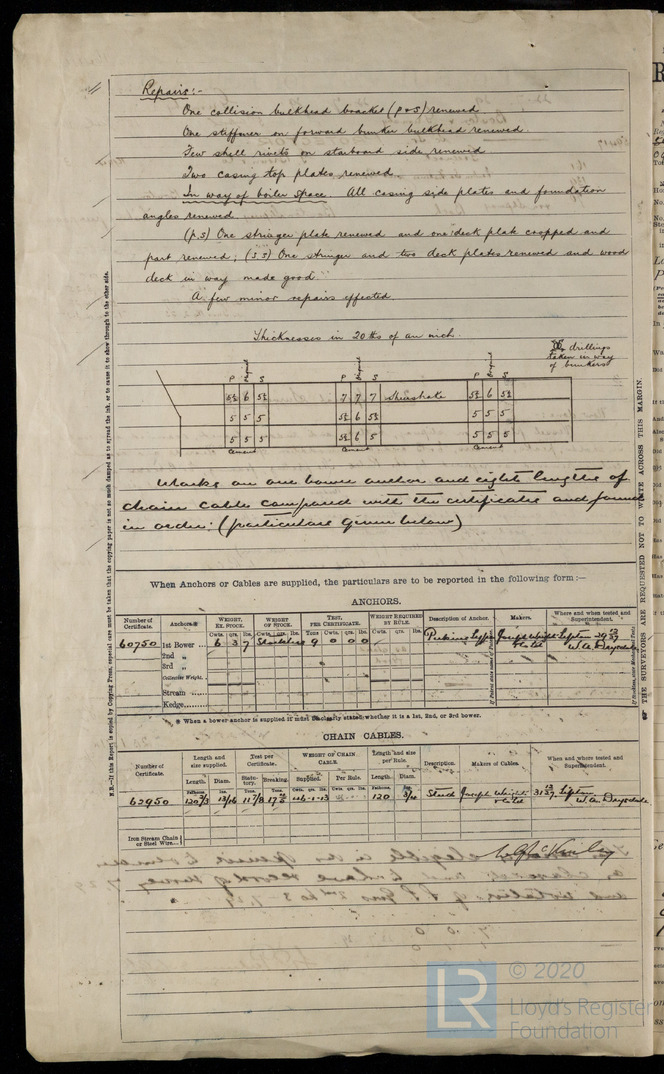 Repairs:-
One collision bulkhead bracket (P & S) renewed
One stiffener on forward bunker bulkhead renewed.
Few shell rivets on starboard side renewed
Two casing top plates renewed.
In way of boiler space All casing side plates and foundation
angles renewed
(P.S) One stringer plate renewed and one deck plate cropped and
part renewed; (S.S) One stringer and two deck plates renewed and wood
deck in way made good
A few minor repairs effected
Thicknesses in 20ths of an inch.
drillings
taken in way
of bunkers
P S P S P S
5½ 6 5½ 7 7 7 Sheerstrake 5½ 6 5½
5 5 5 5½ 6 5½ 5 5 5
5 5 5 5½ 6 5 5 5 5
Cement Cement Cement
Marks on one bower anchor and eight lengths of
chain cable compared with the certificates and found
in order. (particulars given below)
When Anchors or Cables are supplied, the particulars are to be reported in the following form:—
ANCHORS.
Number of Certificate. Anchors.* WEIGHT, EX. STOCK. WEIGHT OF STOCK. TEST, PER CERTIFICATE. WEIGHT REQUIRED BY RULE. Description of Anchor. Makers. Where and when tested and Superintendent.
Cwts. qrs. lbs. Cwts. qrs. lbs. Tons Cwts. qrs. lbs. Cwts. qrs. lbs.
60750 1st Bower ... 6 3 7 Stockless 9 0 0 0 Joseph Wright Tipton
W.A. Drysdale
2nd „
3rd „
Collective Weight.
Stream ...
Kedge...
* When a bower anchor is supplied it must be clearly stated whether it is a 1st, 2nd, or 3rd bower.
CHAIN CABLES.
Number of Certificate. Length and size supplied. Test per Certificate. WEIGHT OF CHAIN CABLE. Length and size per Rule. Description. Makers of Cables. When and where tested and Superintendent.
Length. Diam. Statutory. Breaking. Supplied. Per Rule. Length. Diam.
62950 13/16 120 3/4 Stud Joseph Wright Tipton
W.A. Drysdale
Iron Stream Chain or Steel Wire...
N.B.—If this Report is copied by Copying Press, especial care must be taken that the copying paper is not so much damped as to spread the ink, or to cause it to show through to the other side.
THE SURVEYORS ARE REQUESTED NOT TO WRITE ACROSS THIS MARGIN.
LR
© 2020
Lloyd's Register
Foundation